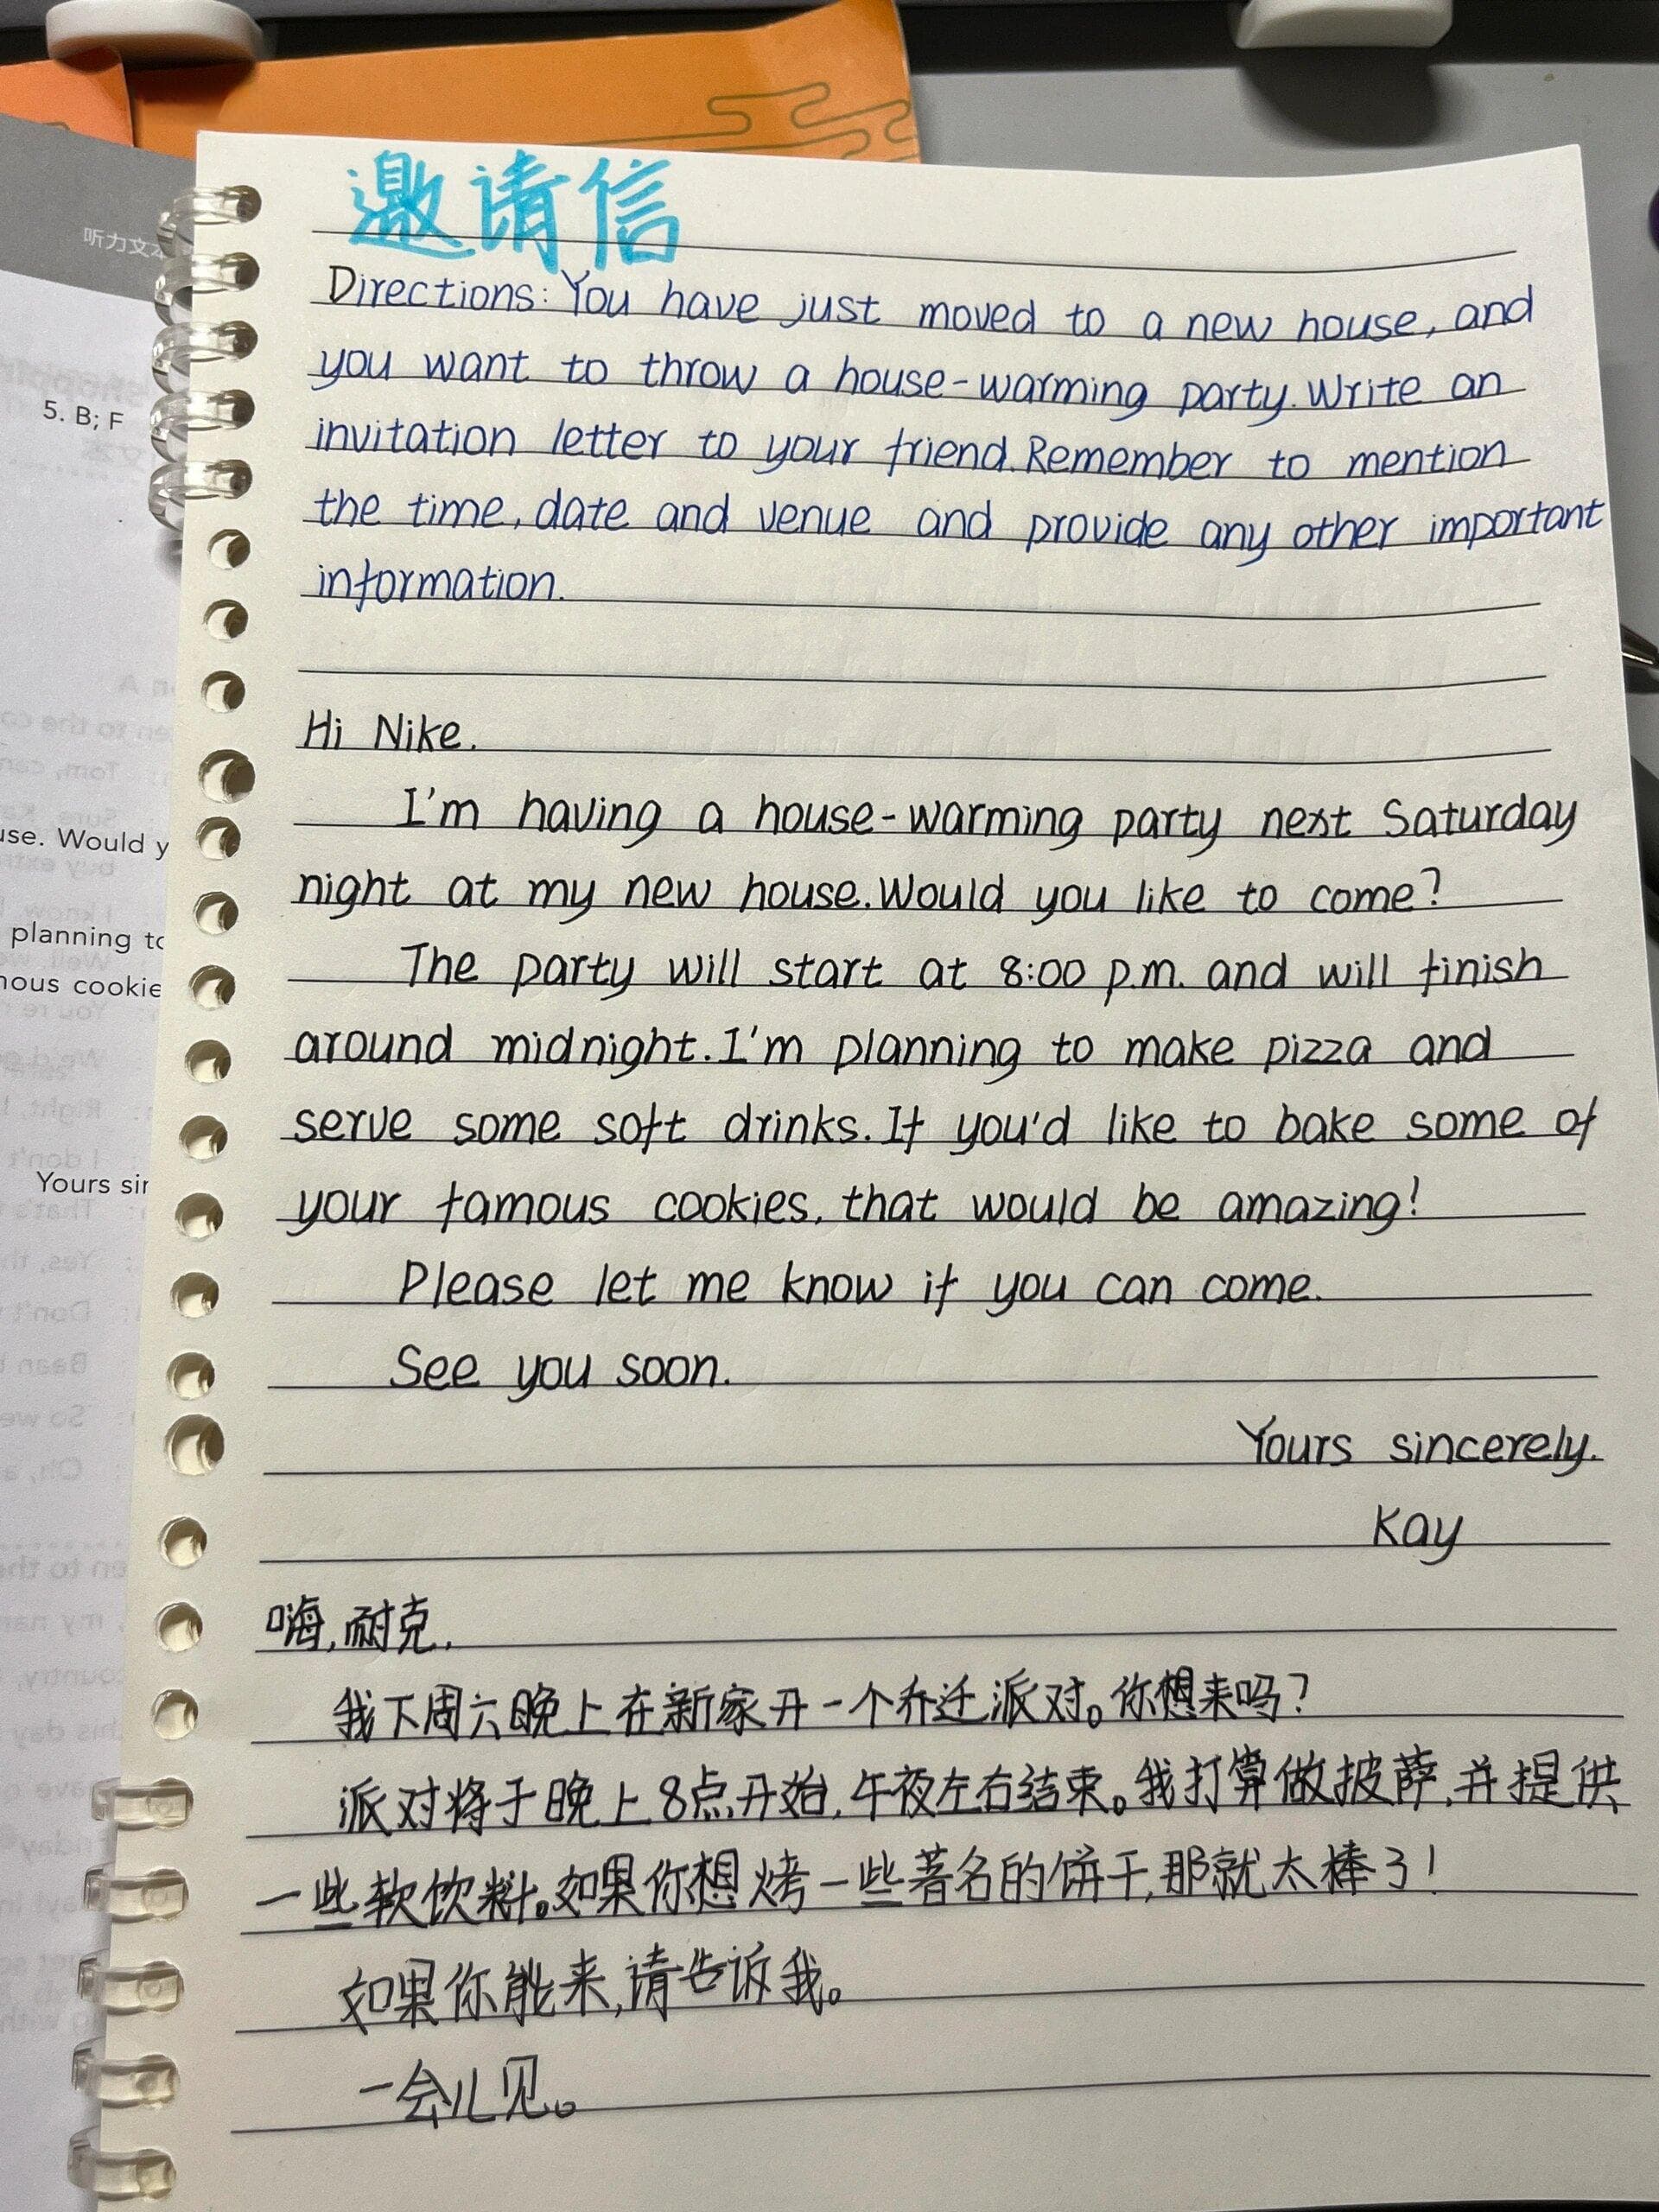 邀请信
Directions: You have just moved to a new house, and
you want to throw a house-warming party. Write an
invitation letter to your friend. Remember to mention
the time, date and venue and provide any other important
information.
Hi Nike.
I'm having a house-warming party next Saturday
night at my new house. Would you like to come?
The party will start at 8:00 p.m. and will finish
around midnight. I'm planning to make pizza and
serve some soft drinks. If you'd like to bake some of
your famous cookies, that would be amazing!
Please let me know if you can come.
See you soon.
Yours sincerely.
Kay
嗨,耐克,
我下周六晚上在新家开一个乔迁派对。你想来吗?
派对将于晚上8点开始,午夜左右结束。我打算做披萨,并提供
一些软饮料。如果你想烤一些著名的饼干,那就太棒了!
如果你能来,请告诉我。
一会儿见。
听力文本
5. B; F
use. Would y
planning to
nous cookie
Yours sin